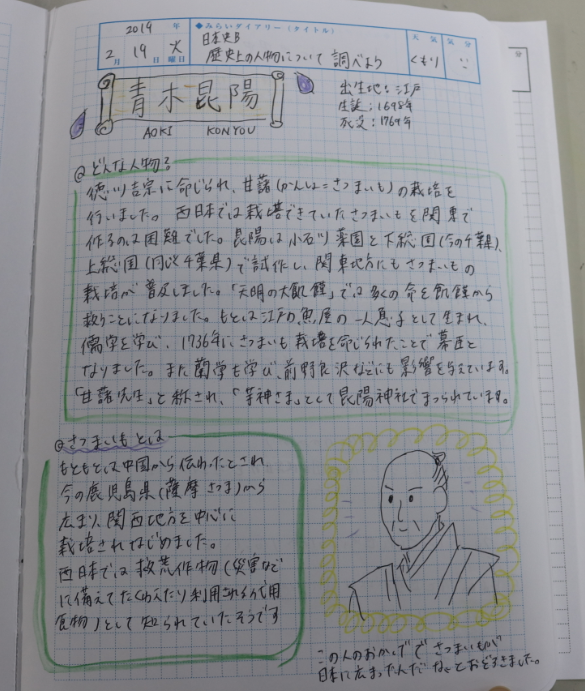 2019 年
2月 19日 火曜日
◆みらいダイアリー(タイトル)
日本史B
歴史上の人物について 調べよう
天気 気分
くもり
分
青木昆陽
AOKI KONYOU
出生地:江戸
生誕:1698年
死没:1769年
@どんな人物?
徳川吉宗に命じられ、甘藷(かんしょ=さつまいも)の栽培を
行いました。西日本では栽培できていたさつまいもを関東で
作るのは困難でした。昆陽は小石川薬園と下総国(今の千葉県)、
上総国(同じく千葉県)で試作し、関東地方にもさつまいもの
栽培が普及しました。「天明の大飢饉」では多くの命を飢饉から
救うことになりました。もとは江戸の魚屋の一人息子として生まれ、
儒学を学び、1736年にさつまいも栽培を命じられたことで幕臣と
なりました。また蘭学も学び、前野良沢などにも影響を与えています。
「甘藷先生」と称され、「芋神さま」として昆陽神社でまつられています。
@さつまいもとは
もともとは中国から伝わったとされ、
今の鹿児島県(薩摩 さつま)から
広まり、関西地方を中心に
栽培されはじめました。
西日本では救荒作物(災害など
に備えてたくわえたり利用される代用
食物)として知られていたそうです
この人のおかげでさつまいもが
日本に広まったんだなぁとおどろきました。